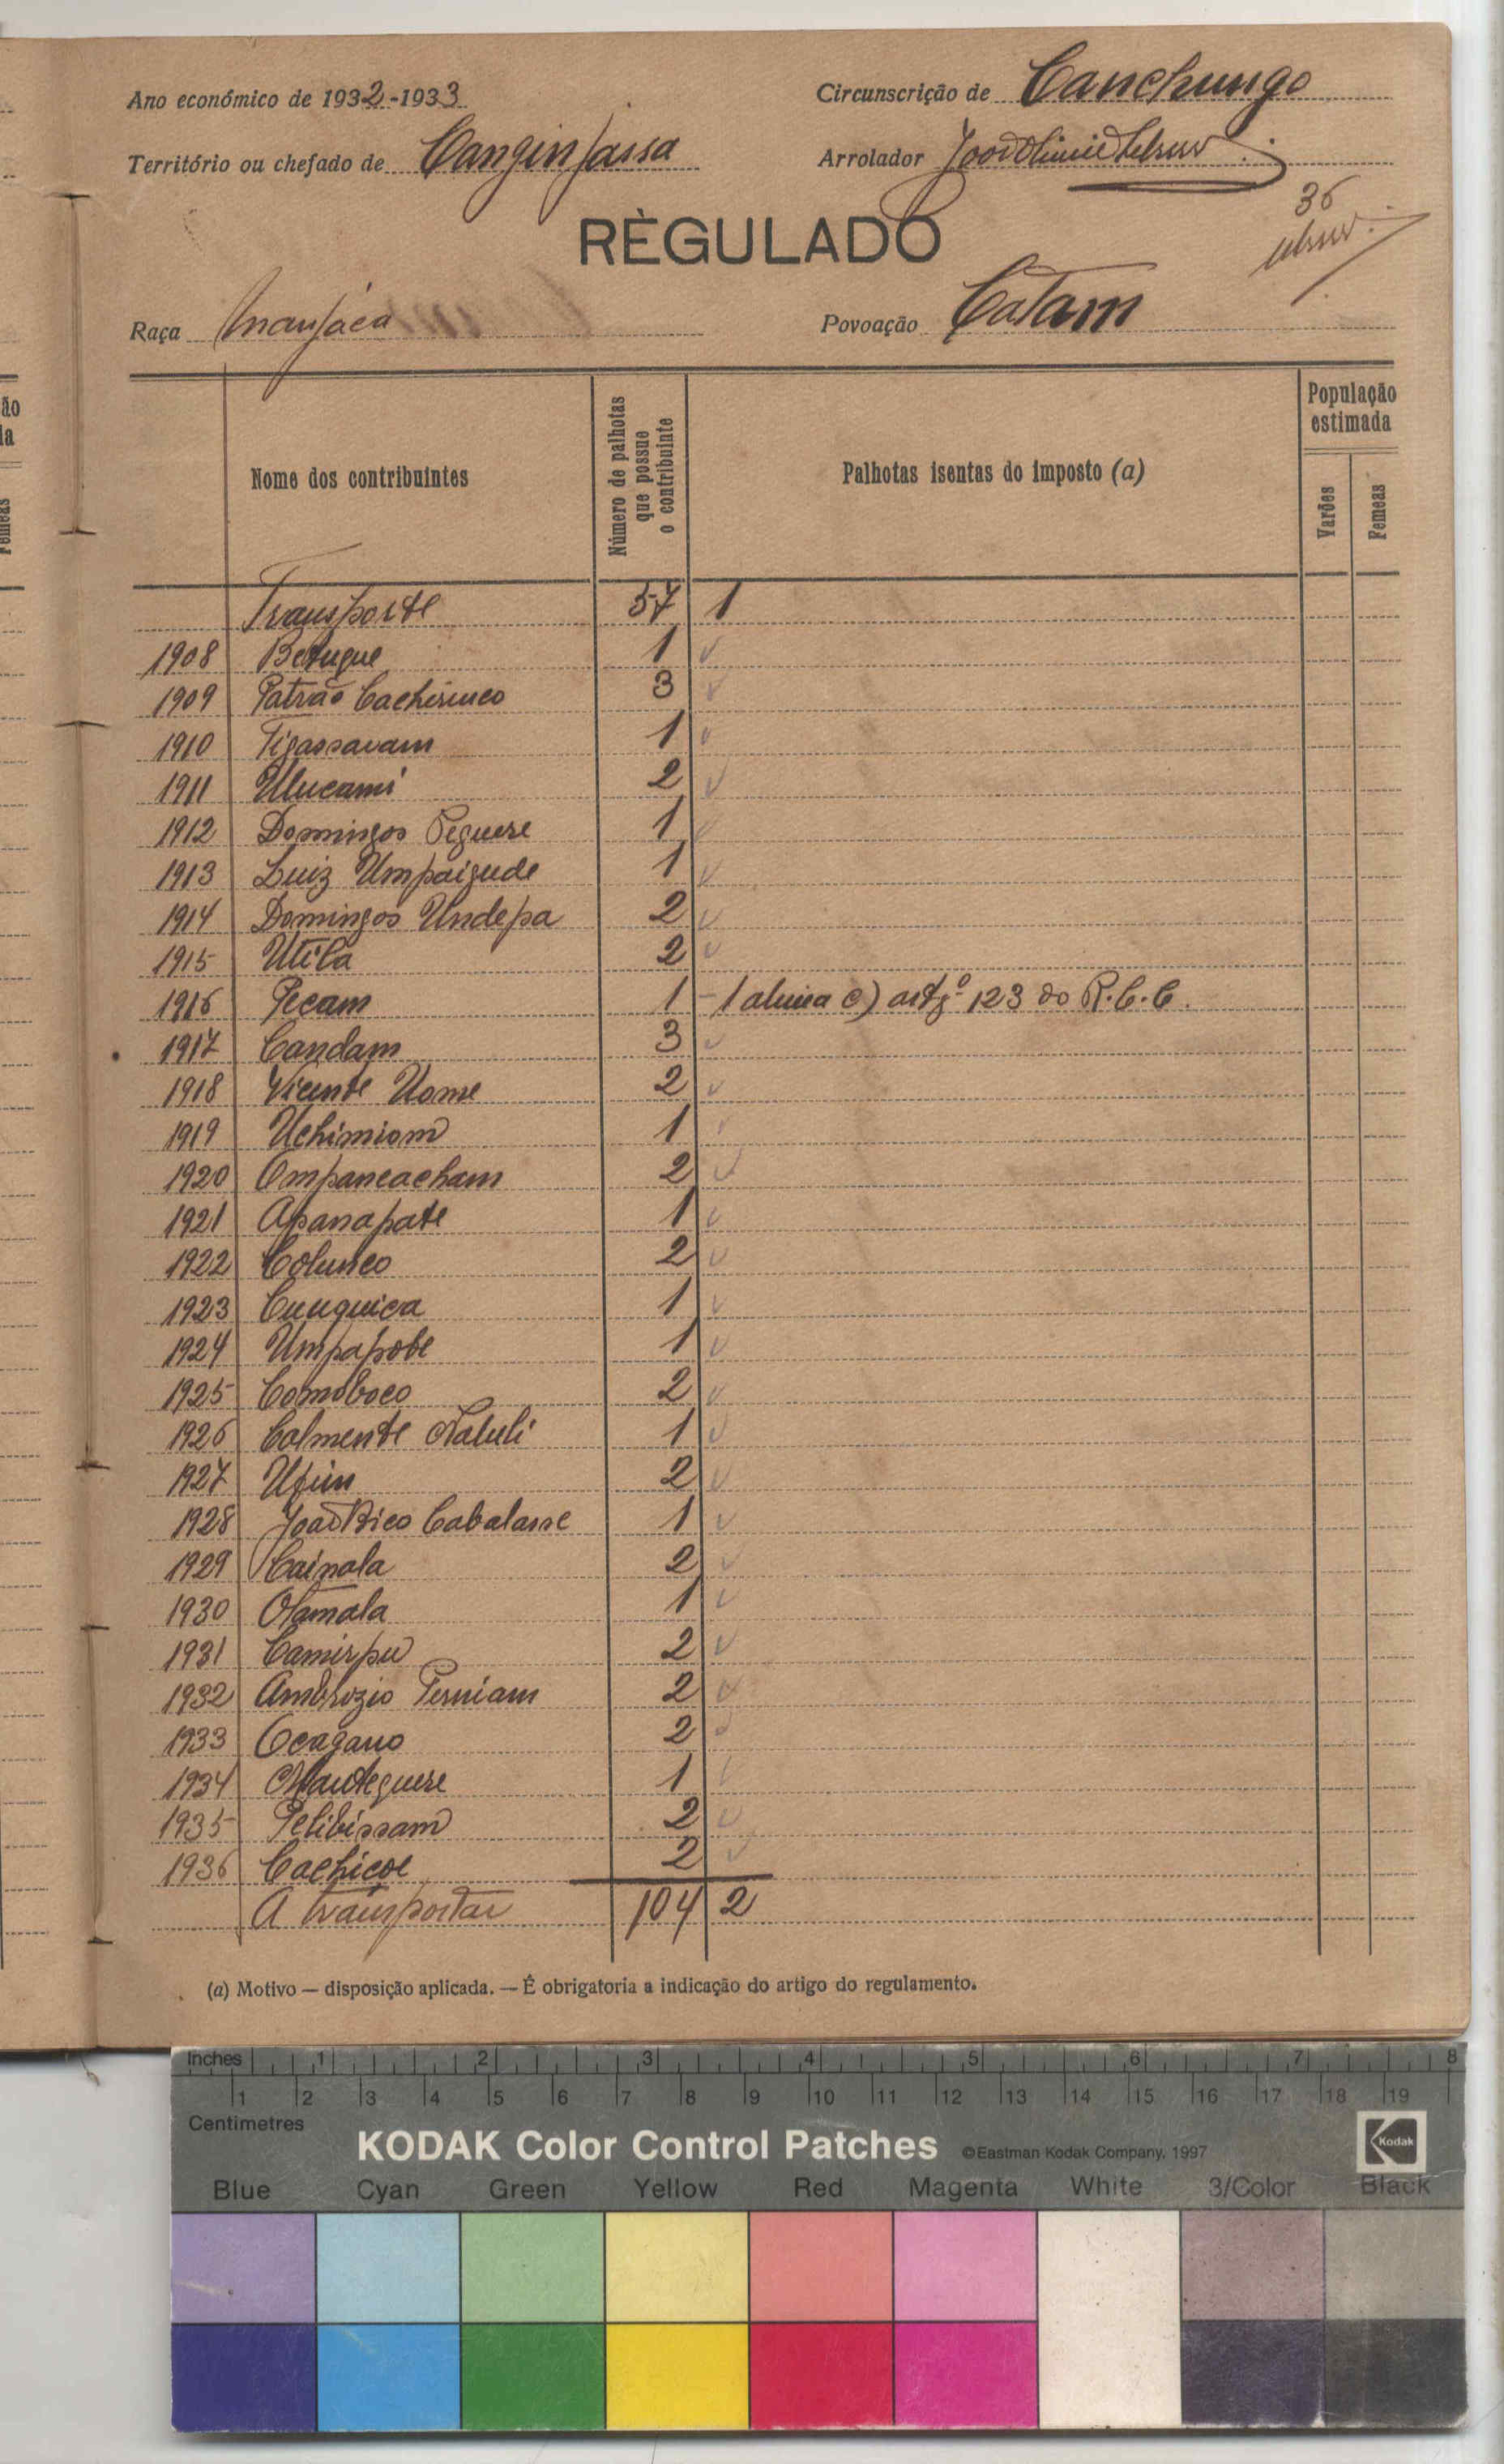 Ano económico de 1932-1933
Circunscrição de Canchungo
Território ou chefado de Canginjassa
Arrolador
36
RÈGULADO
Raça Manjáca
Povoação Catam
Nome dos contribuintes
Número de palhotas que possue o contribuinte
Palhotas isentas do imposto (a)
População estimada
Varões
Femeas
Transporte 57 1
1908 Betugue 1
1909 Patrão Cachirinco 3
1910 Tigassavam 1
1911 Ulucami 2
1912 Domingos Peguere 1
1913 Luiz Umpaigude 1
1914 Domingos Undepa 2
1915 Utila 2
1916 Pecam 1 - 1 alinea c) artgº 123 do R.C.C.
1917 Candam 3
1918 Vicente Uome 2
1919 Uchimiom 1
1920 Ompancacham 2
1921 Apanapate 1
1922 Colunco 2
1923 Cunquica 1
1924 Umpapobe 1
1925 Comoboco 2
1926 Calmente Naluli 1
1927 Ufim 2
1928 João Bico Cabalasse 1
1929 Cainala 2
1930 Otamala 1
1931 Camirpu 2
1932 Ambrozio Perniam 2
1933 Ocagano 2
1934 Manteguere 1
1935 Pelibissam 2
1936 Cachicoe 2
A transportar 104 2
(a) Motivo — disposição aplicada. — É obrigatoria a indicação do artigo do regulamento.
Inches 1 2 3 4 5 6 7 8
1 2 3 4 5 6 7 8 9 10 11 12 13 14 15 16 17 18 19
Centimetres
KODAK Color Control Patches ©Eastman Kodak Company, 1997 Kodak
Blue Cyan Green Yellow Red Magenta White 3/Color Black